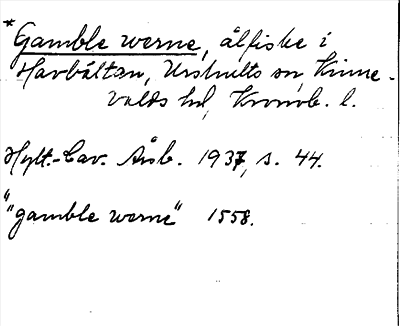 *Gamble werne, ålfiske i
Havbältan, Urshults sn, Kinne-
valds hd, Kronob. l.
Hylt.-Cav. Årsb. 1937, s. 44.
"gamble werne" 1558.